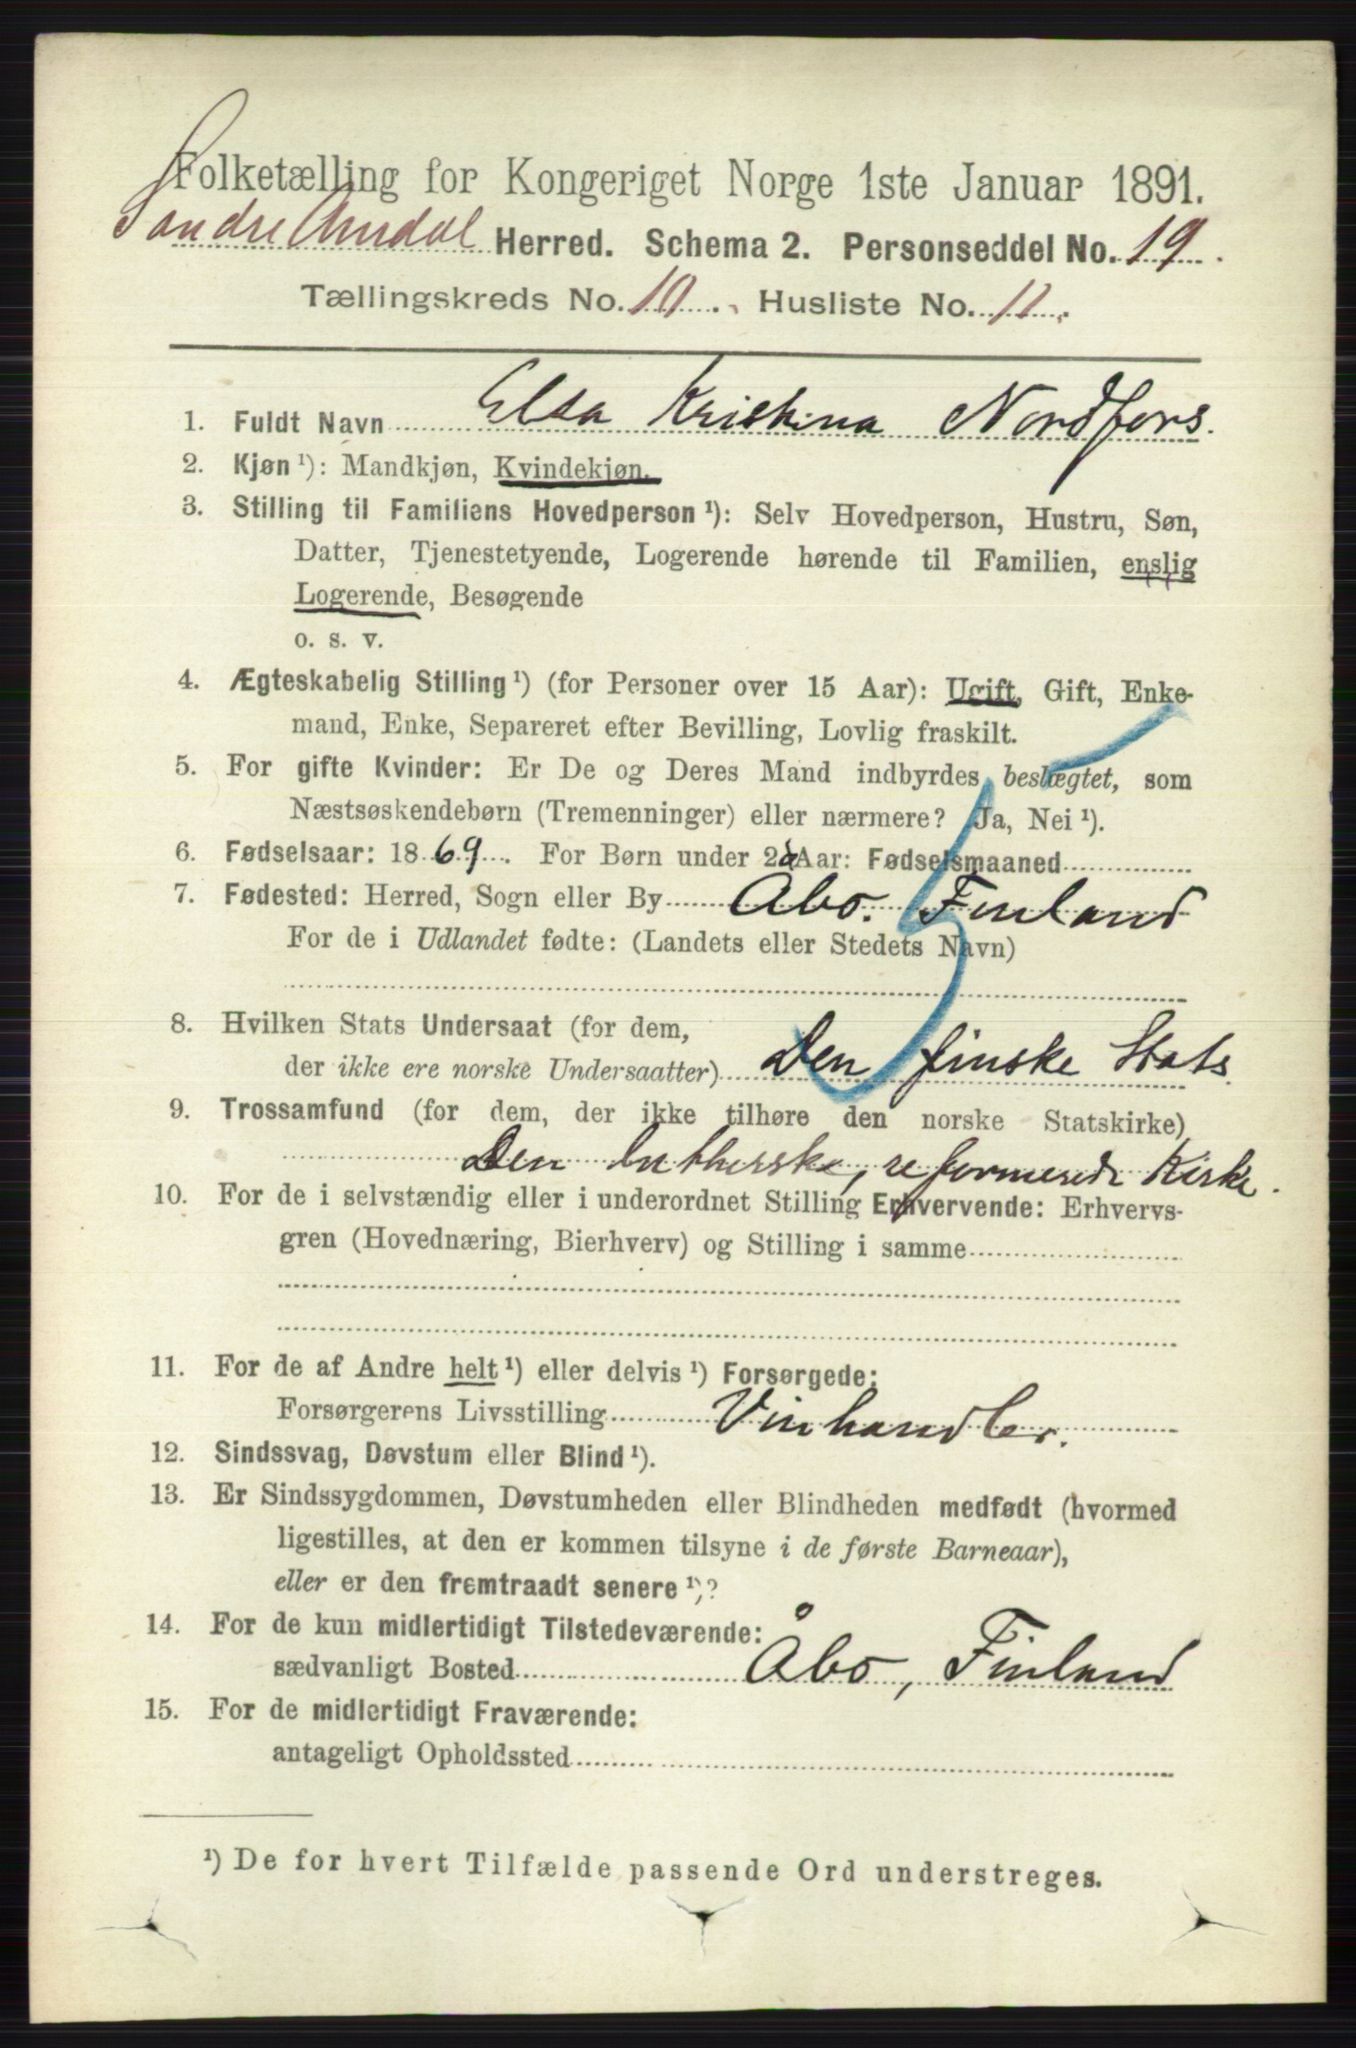 Folketælling for Kongeriget Norge 1ste Januar 1891.
Søndre Aurdal Herred. Schema 2. Personseddel No. 19.
Tællingskreds No. 10. Husliste No. 11.
1. Fuldt Navn Elsa Kristina Nordfors.
2. Kjøn ¹): Mandkjøn, Kvindekjøn.
3. Stilling til Familiens Hovedperson ¹): Selv Hovedperson, Hustru, Søn,
Datter, Tjenestetyende, Logerende hørende til Familien, enslig
Logerende, Besøgende
o. s. v.
4. Ægteskabelig Stilling ¹) (for Personer over 15 Aar): Ugift, Gift, Enke-
mand, Enke, Separeret efter Bevilling, Lovlig fraskilt.
5. For gifte Kvinder: Er De og Deres Mand indbyrdes beslægtet, som
Næstsøskendebørn (Tremenninger) eller nærmere? Ja, Nei ¹).
6. Fødselsaar: 1869. For Børn under 2 Aar: Fødselsmaaned
7. Fødested: Herred, Sogn eller By Åbo. Finland
For de i Udlandet fødte: (Landets eller Stedets Navn)
8. Hvilken Stats Undersaat (for dem,
der ikke ere norske Undersaatter) Den finske Stats
9. Trossamfund (for dem, der ikke tilhøre den norske Statskirke)
Den lutherske, reformerede Kirke.
10. For de i selvstændig eller i underordnet Stilling Erhvervende: Erhvervs-
gren (Hovednæring, Bierhverv) og Stilling i samme
11. For de af Andre helt ¹) eller delvis ¹) Forsørgede:
Forsørgerens Livsstilling Vinhandler.
12. Sindssvag, Døvstum eller Blind ¹).
13. Er Sindssygdommen, Døvstumheden eller Blindheden medfødt (hvormed
ligestilles, at den er kommen tilsyne i de første Barneaar),
eller er den fremtraadt senere ¹)?
14. For de kun midlertidigt Tilstedeværende:
sædvanligt Bosted Åbo, Finland
15. For de midlertidigt Fraværende:
antageligt Opholdssted
¹) De for hvert Tilfælde passende Ord understreges.